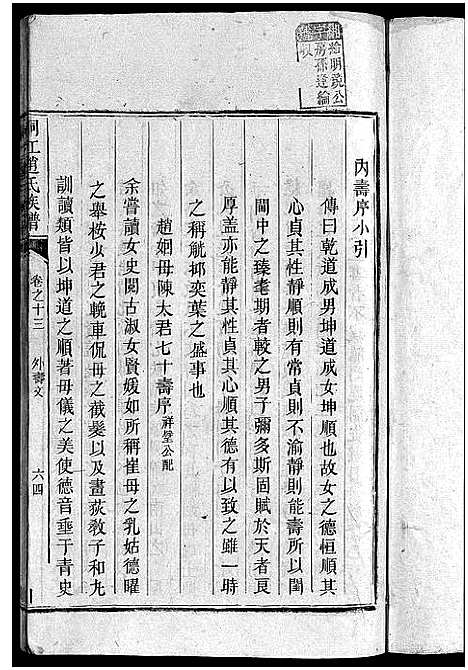 內壽序小引
傳曰乾道成男坤道成女坤順也故女之德恒順其
心貞其性靜順則有常貞則不渝靜則能壽所以閨
閫中之臻耄期者較之男子彌多斯固賦於天者良
厚蓋亦能靜其性貞其心順其德有以致之雖一時
之稱觥抑奕葉之盛事也
趙姻母陳太君七十壽序祥堂公配
余嘗讀女史閱古淑女賢媛如所稱崔母之乳姑德曜
之舉桉少君之輓車侃母之截髮以及畫荻敎子和九
訓讀類皆以坤道之順著母儀之美使德音垂于青史
江趙氏族譜
卷之十三
外壽文
六四